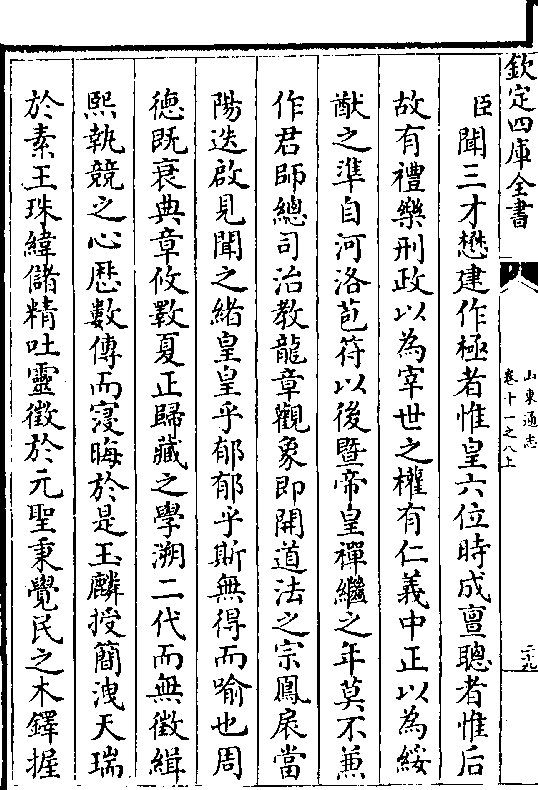 欽定四庫全書
山東通志
卷十一之八上
二十九
臣聞三才懋建作極者惟皇六位時成亶聰者惟后
故有禮樂刑政以為宰世之權有仁義中正以為綏
猷之準自河洛苞符以後暨帝皇禪繼之年莫不兼
作君師總司治教龍章觀象即開道法之宗鳳扆當
陽迭啟見聞之緒皇皇乎郁郁乎斯無得而喻也周
德既衰典章攸斁夏正歸藏之學溯二代而無徵緝
熙執競之心歷數傳而寖晦於是玉麟授簡洩天瑞
於素王珠緯儲精吐靈徵於元聖秉覺民之木鐸握